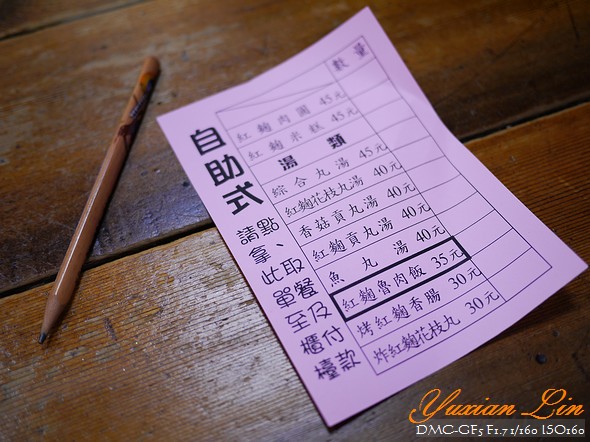 自助式
請拿此單至櫃檯
點、取餐及付款
數量
紅麴肉圓 45元
紅麴米糕 45元
湯類
綜合丸湯 45元
紅麴花枝丸湯 40元
香菇貢丸湯 40元
紅麴貢丸湯 40元
魚丸湯 40元
紅麴魯肉飯 35元
烤紅麴香腸 30元
炸紅麴花枝丸 30元
Yuxian Lin
DMC-GF5 F1.7 1/160 ISO160